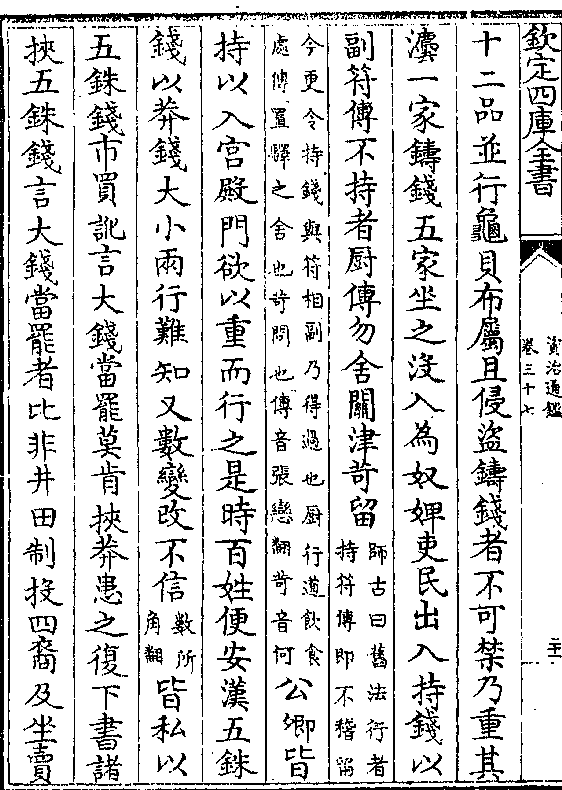 欽定四庫全書
資治通鑑
卷三十七
二十
十二品並行龜貝布屬且侵盜鑄錢者不可禁乃重其
灋一家鑄錢五家坐之沒入為奴婢吏民出入持錢以
副符傳不持者厨傳勿舍關津苛留
師古曰舊法行者
持符傳即不稽留
今更令持錢與符相副乃得過也厨行道飲食
處傳置驛之舍也苛問也傳音張戀翻苛音何
公卿皆
持以入宮殿門欲以重而行之是時百姓便安漢五銖
錢以莽錢大小兩行難知又數變改不信
數所
角翻
皆私以
五銖錢市買訛言大錢當罷莫肯挾莽患之復下書諸
挾五銖錢言大錢當罷者比非井田制投四裔及坐賣